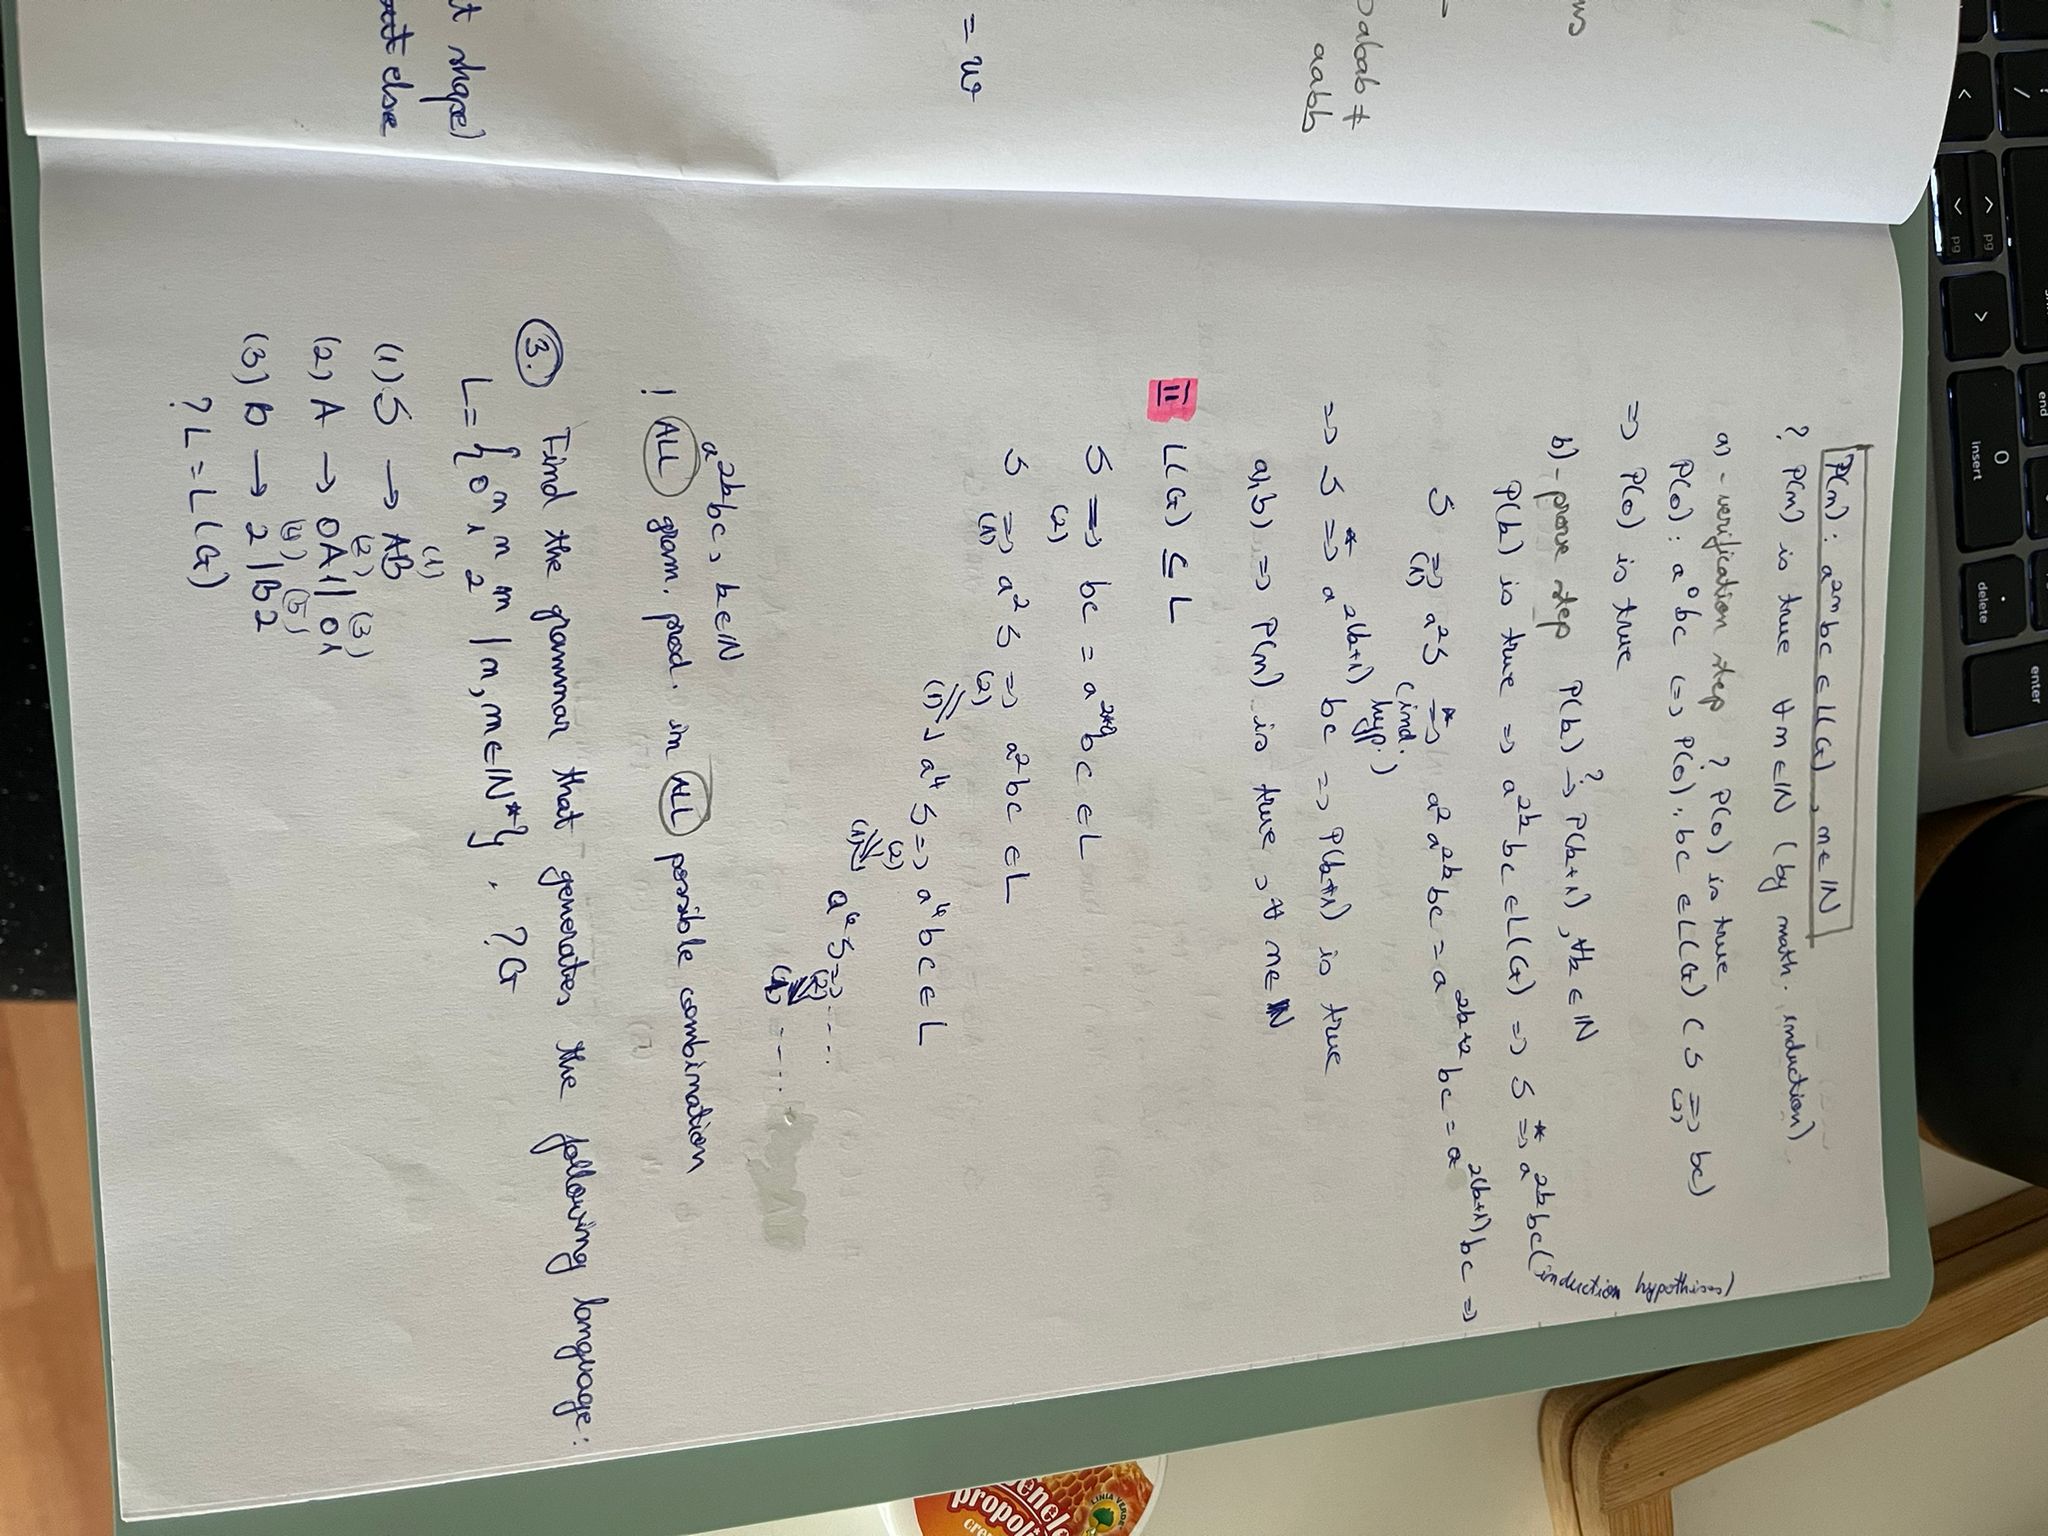 end
enter
/
^ pg
0
insert
.
delete
<
pg
>
P(n): a²ⁿbc ∈ L(G), n∈ℕ
? P(n) is true ∀n∈ℕ (by math. induction)
a) - verification step ? P(0) is true
P(0): a⁰bc <=> P(0): bc ∈ L(G) (S =>(2) bc)
=> P(0) is true
b) - prove step P(k) ?-> P(k+1), ∀k ∈ ℕ
P(k) is true => a^2k bc ∈ L(G) => S *=> a^2k bc (induction hypothesis)
S =>(1) a²S *=> (ind. hyp.) a² a^2k bc = a^2k+2 bc = a^2(k+1) bc =>
=> S *=> a^2(k+1) bc => P(k+1) is true
a), b) => P(n) is true, ∀ n∈ℕ
II L(G) ⊆ L
S =>(2) bc = a^2*0 bc ∈ L
S =>(1) a²S =>(2) a²bc ∈ L
=>(1) a⁴S =>(2) a⁴bc ∈ L
=>(1) a⁶S =>(2) ....
(1) ....
a^2k bc, k∈ℕ
! ALL gram. prod. in ALL possible combination
3. Find the grammar that generates the following language:
L = {0ⁿ1ⁿ2ᵐ | n, m∈ℕ*}. ? G
(1)
(1) S -> AB
(2) (3)
(2) A -> 0A1 | 01
(4) (5)
(3) B -> 2 | B2
? L = L(G)
abab ≠
aabb
= w
shape)
else
VERDE
propoli
cre